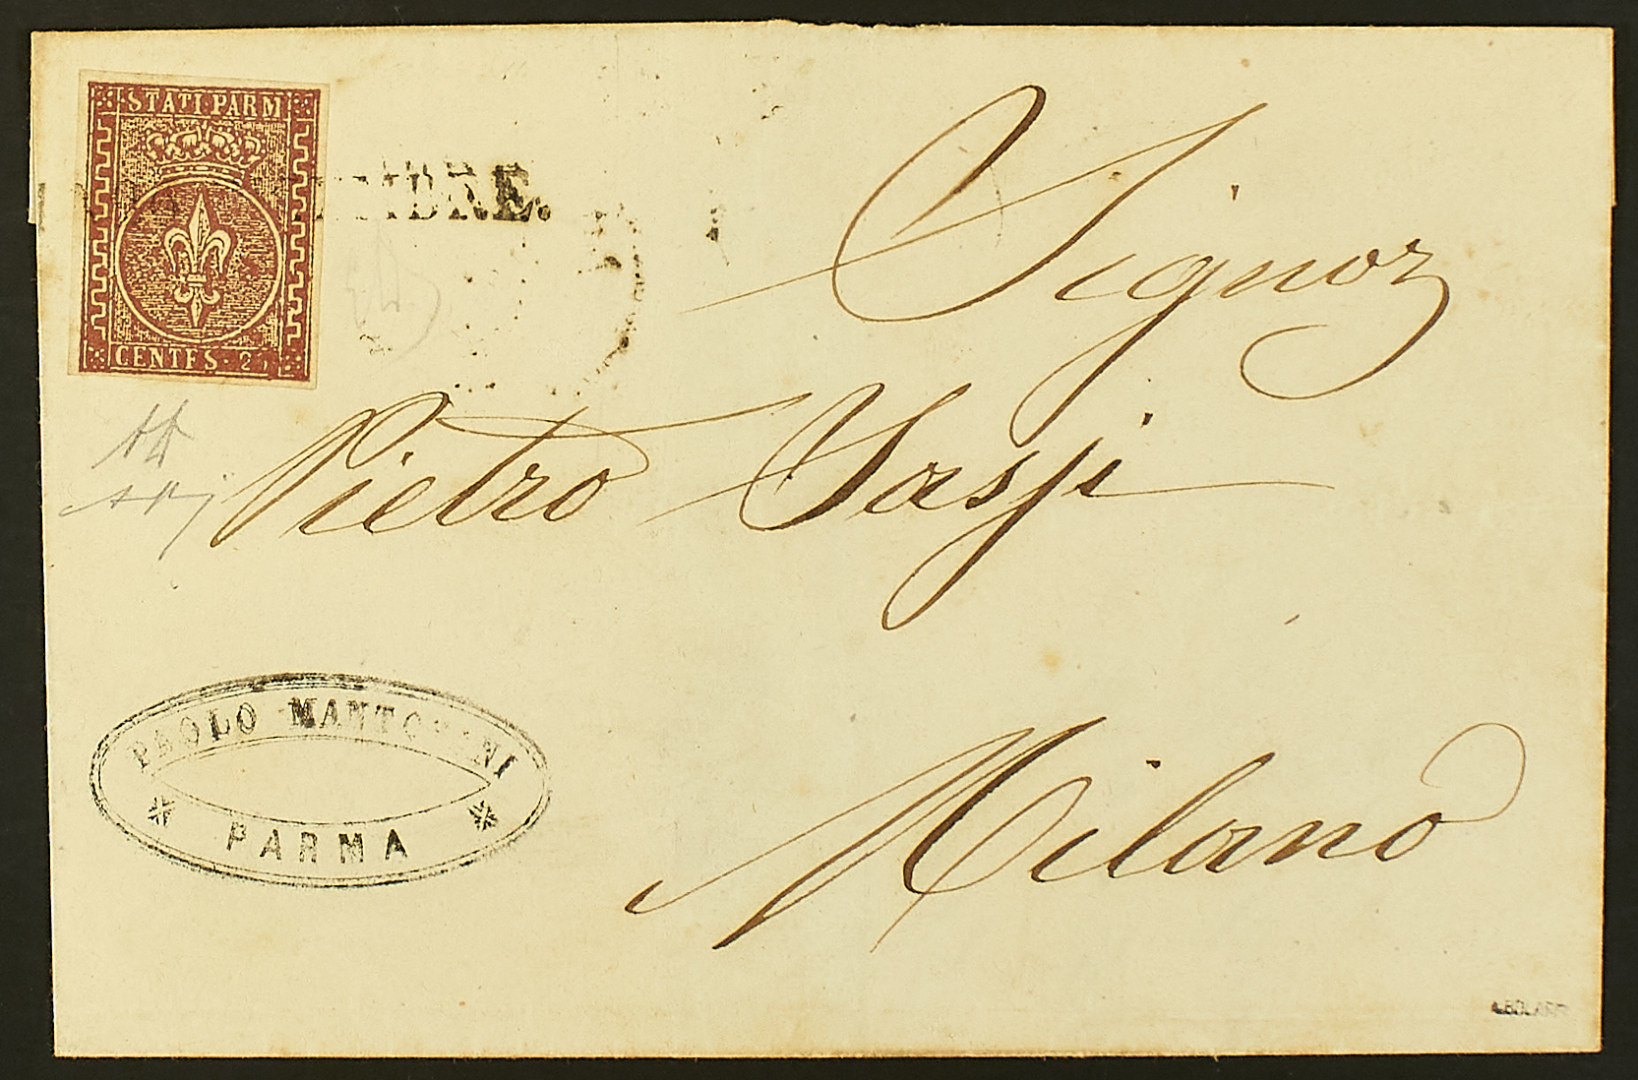 STATI PARM
CENTES. 25
Signor
Pietro Sassi
Milano
PAOLO MANTOVANI
PARMA